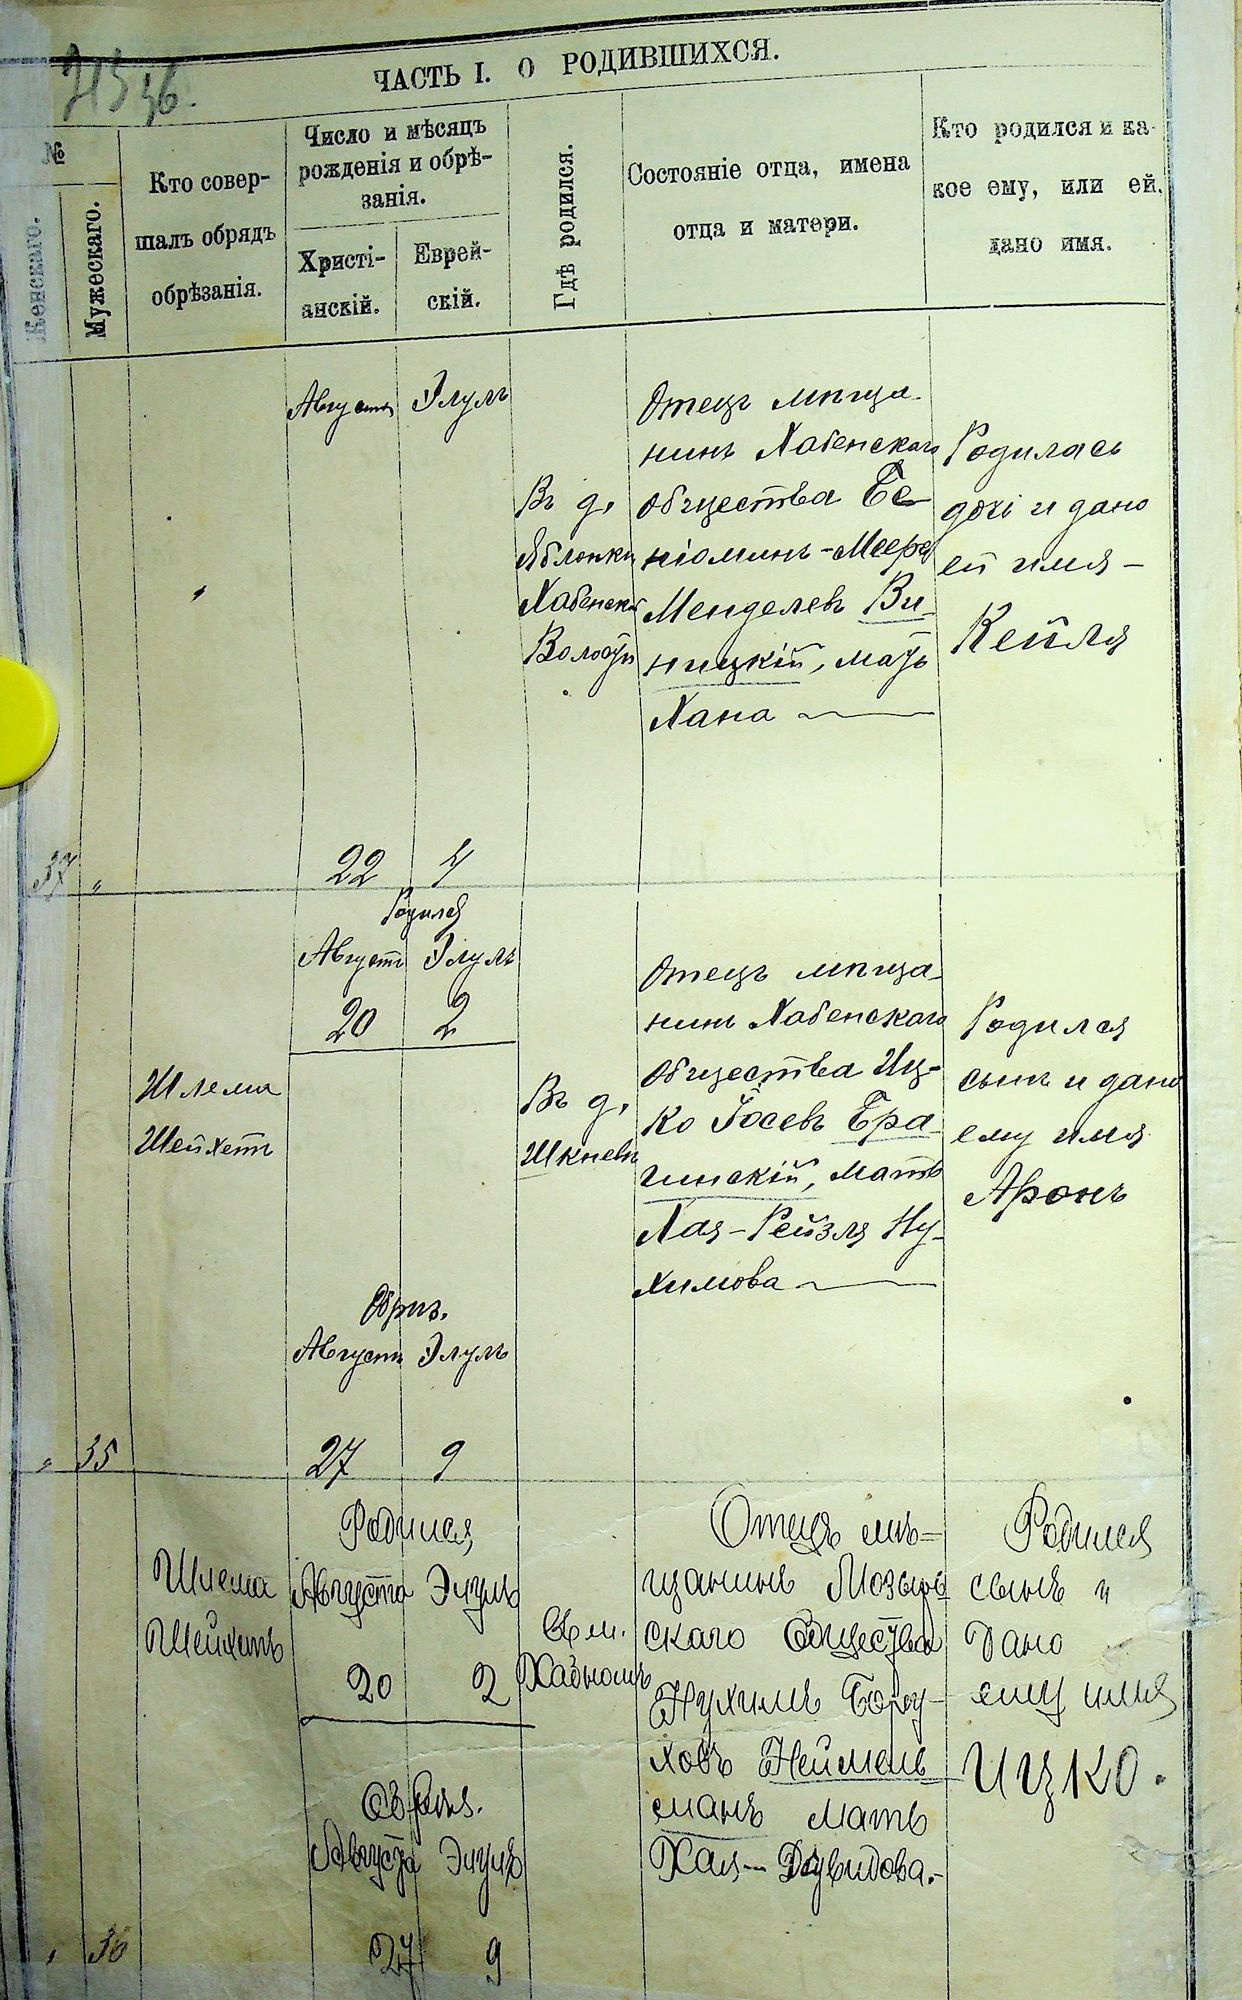 ЧАСТЬ I. О РОДИВШИХСЯ.
№
Женскаго.
Мужескаго.
Кто совер-
шалъ обрядъ
обрѣзанія.
Число и мѣсяцъ
рожденія и обрѣ-
занія.
Христі-
анскій.
Еврей-
скій.
Гдѣ родился.
Состояніе отца, имена
отца и матери.
Кто родился и ка-
кое ему, или ей,
дано имя.
37 "
Августа Элулъ
22 4
Въ д.
Яблонки
Хабенской
Волости
Отецъ мѣща-
нинъ Хабенскаго
общества Бе-
ніоминъ-Мееръ
Менделевъ Ви-
ницкій, мать
Хана
Родилась
дочь и дано
ей имя -
Кейля
" 35
Шлема
Шейхетъ
Родился
Августъ Элулъ
20 2
Обрѣз.
Августъ Элулъ
27 9
Въ д.
Шкневъ
Отецъ мѣща-
нинъ Хабенскаго
общества Иц-
ко Іосевъ Бра-
гинскій, мать
Хая-Рейзля Ну-
химова
Родился
сынъ и дано
ему имя
Аронъ
" 36
Шлема
Шейхетъ
Родился
Августа Элулъ
20 2
Обрѣз.
Августа Элулъ
27 9
Въ м.
Хабномъ
Отецъ мѣ=
щанинъ Мозыр-
скаго Общества
Нухимъ Бору-
ховъ Неймель
манъ мать
Хая-Дувидова.-
Родился
сынъ и
дано
ему имя
Ицко.